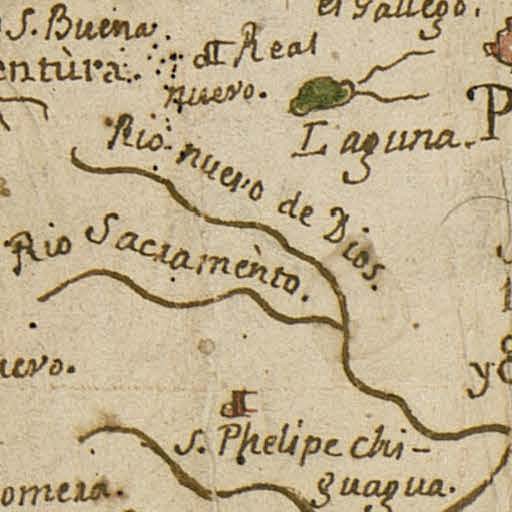 el Gallego.
S. Buena
entùra.
Real
nuevo.
Laguna.
P
Rio nuevo de Dios.
Rio Sacramènto.
uevo.
y
S. Phelipe chi-
guagua.
omera.